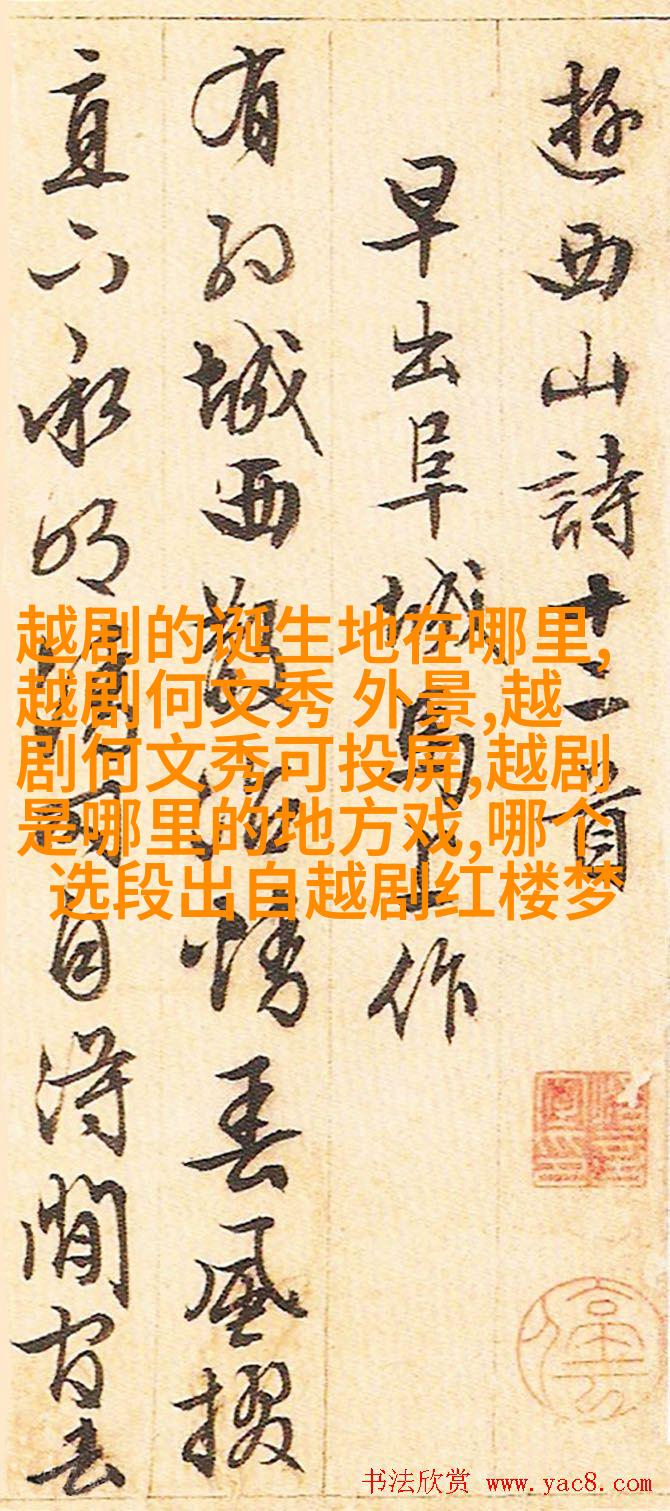 遊西山詩十二首
早出阜城馬上作
有約城西散冶情春風掇
直下承明自得閒官
越剧的诞生地在哪里,
越剧何文秀 外景,越
剧何文秀可投屏,越剧
是哪里的地方戏,哪个
选段出自越剧红楼梦
书法欣赏 www.yac8.com